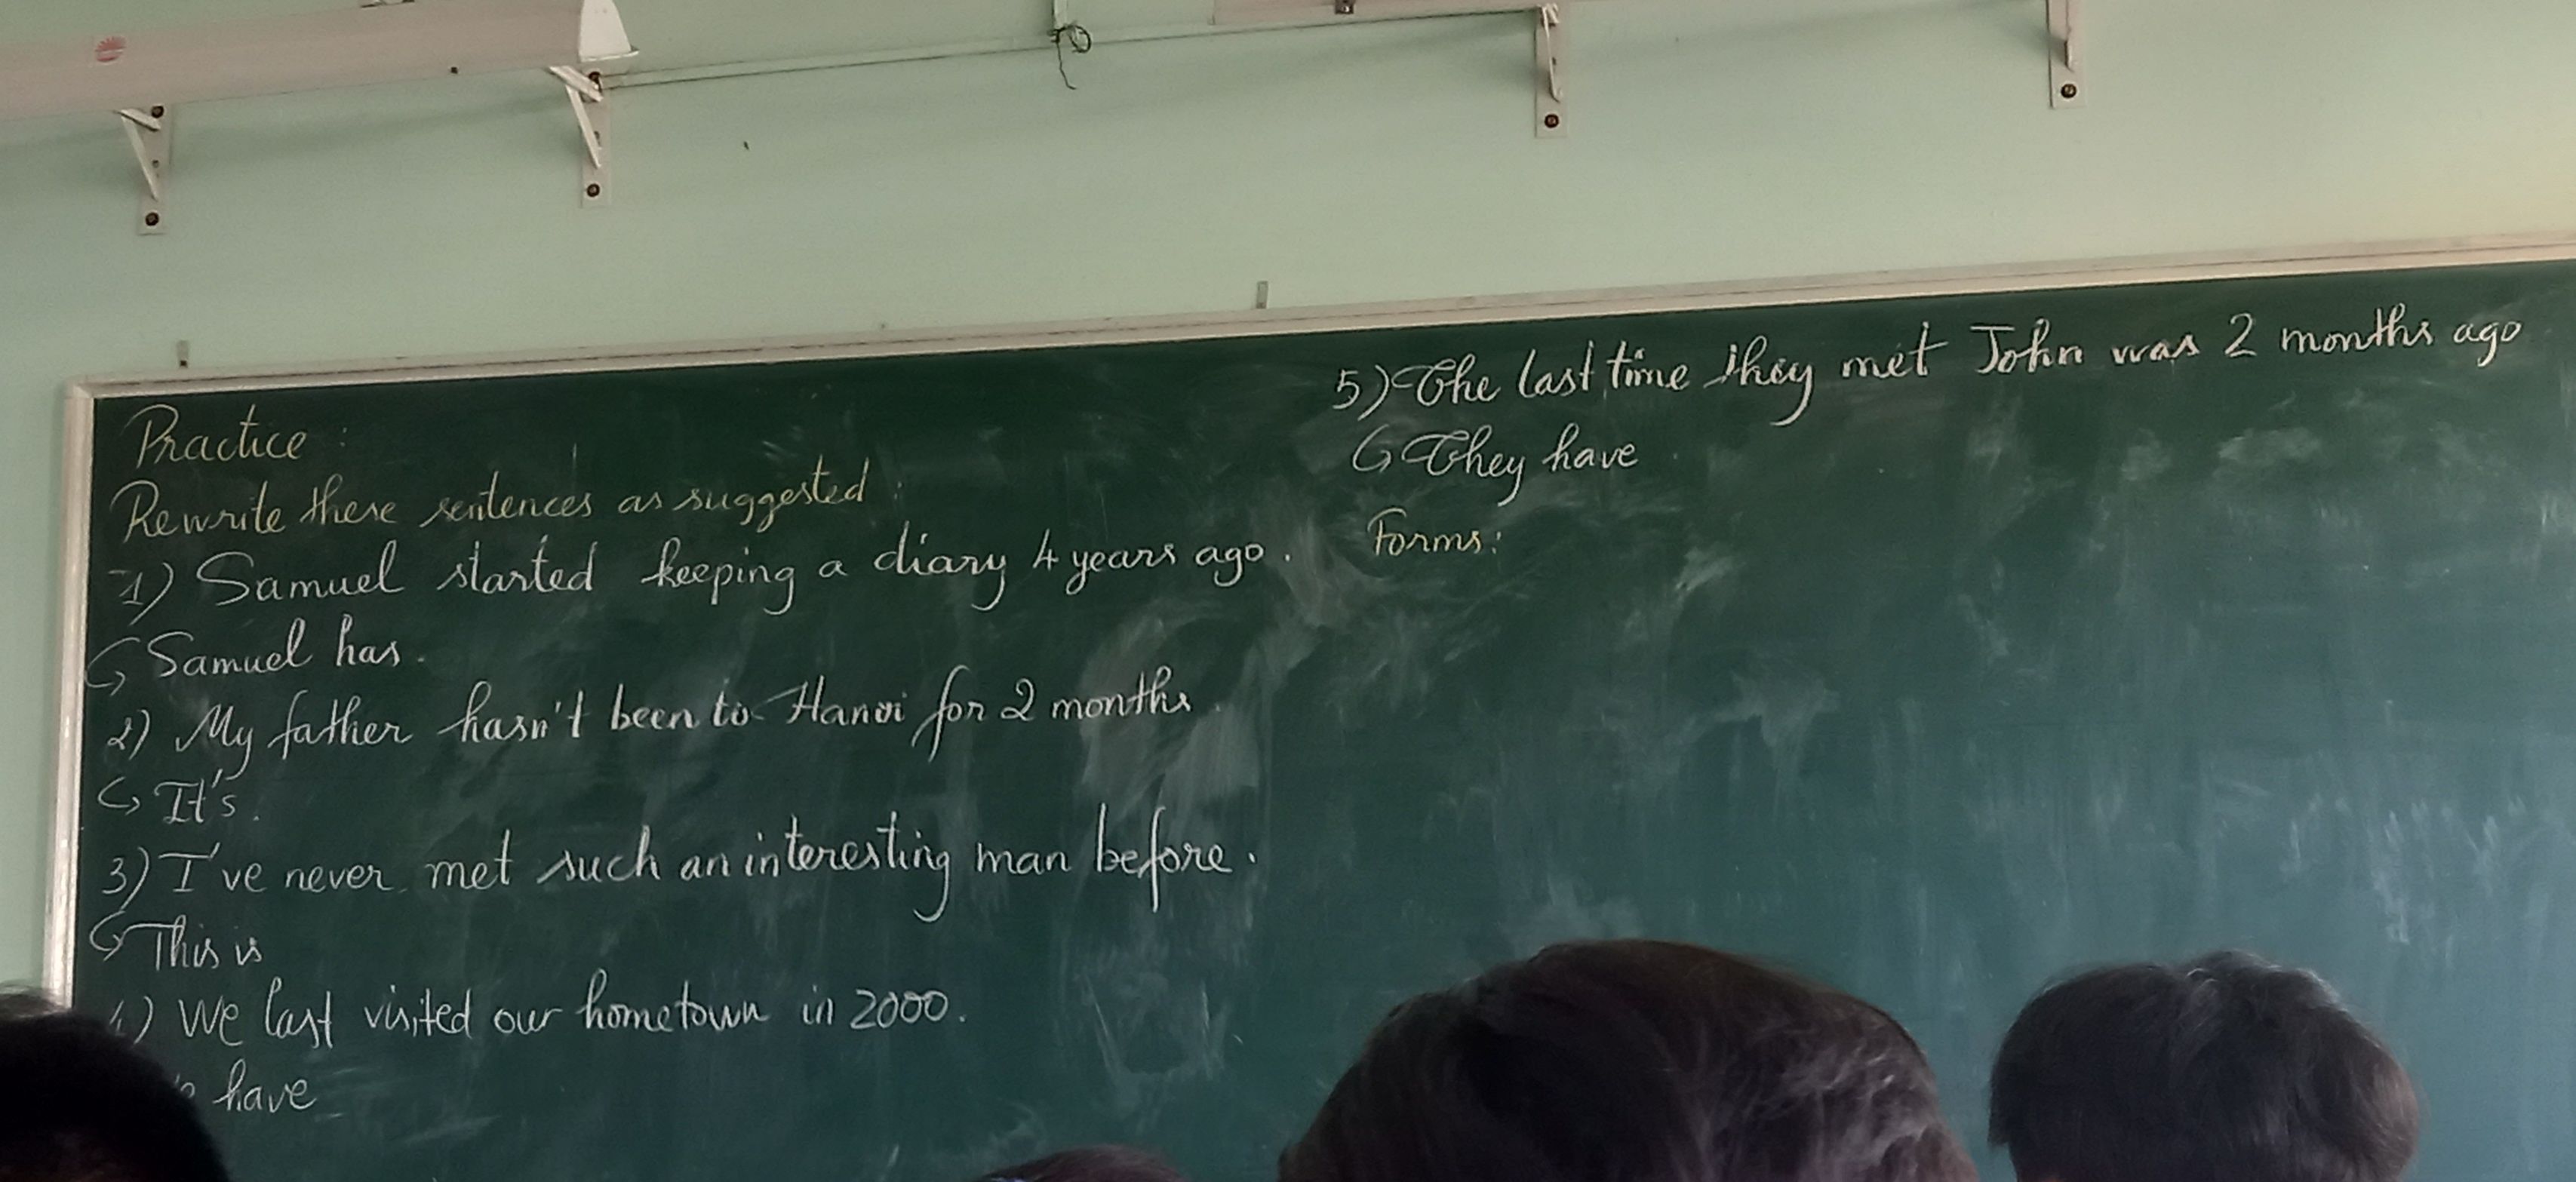 Practice:
Rewrite these sentences as suggested:
1) Samuel started keeping a diary 4 years ago.
↳ Samuel has.
2) My father hasn't been to Hanoi for 2 months.
↳ It's.
3) I've never met such an interesting man before.
↳ This is
4) We last visited our hometown in 2000.
have
5) The last time they met John was 2 months ago
↳ They have
Forms: